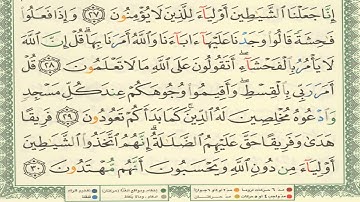 إِنَّا جَعَلْنَا الشَّيَاطِينَ أَوْلِيَآءَ لِلَّذِينَ لَا يُؤْمِنُونَ ٢٧ وَإِذَا فَعَلُوا
فَاحِشَةً قَالُوا وَجَدْنَا عَلَيْهَآ ءَابَآءَنَا وَاللَّهُ أَمَرَنَا بِهَا قُلْ إِنَّ اللَّهَ
لَا يَأْمُرُ بِالْفَحْشَآءِ أَتَقُولُونَ عَلَى اللَّهِ مَا لَا تَعْلَمُونَ ٢٨ قُلْ
أَمَرَ رَبِّي بِالْقِسْطِ وَأَقِيمُوا وُجُوهَكُمْ عِندَ كُلِّ مَسْجِدٍ
وَادْعُوهُ مُخْلِصِينَ لَهُ الدِّينَ كَمَا بَدَأَكُمْ تَعُودُونَ ٢٩ فَرِيقًا
هَدَى وَفَرِيقًا حَقَّ عَلَيْهِمُ الضَّلَالَةُ إِنَّهُمُ اتَّخَذُوا الشَّيَاطِينَ
أَوْلِيَآءَ مِن دُونِ اللَّهِ وَيَحْسَبُونَ أَنَّهُم مُّهْتَدُونَ ٣٠